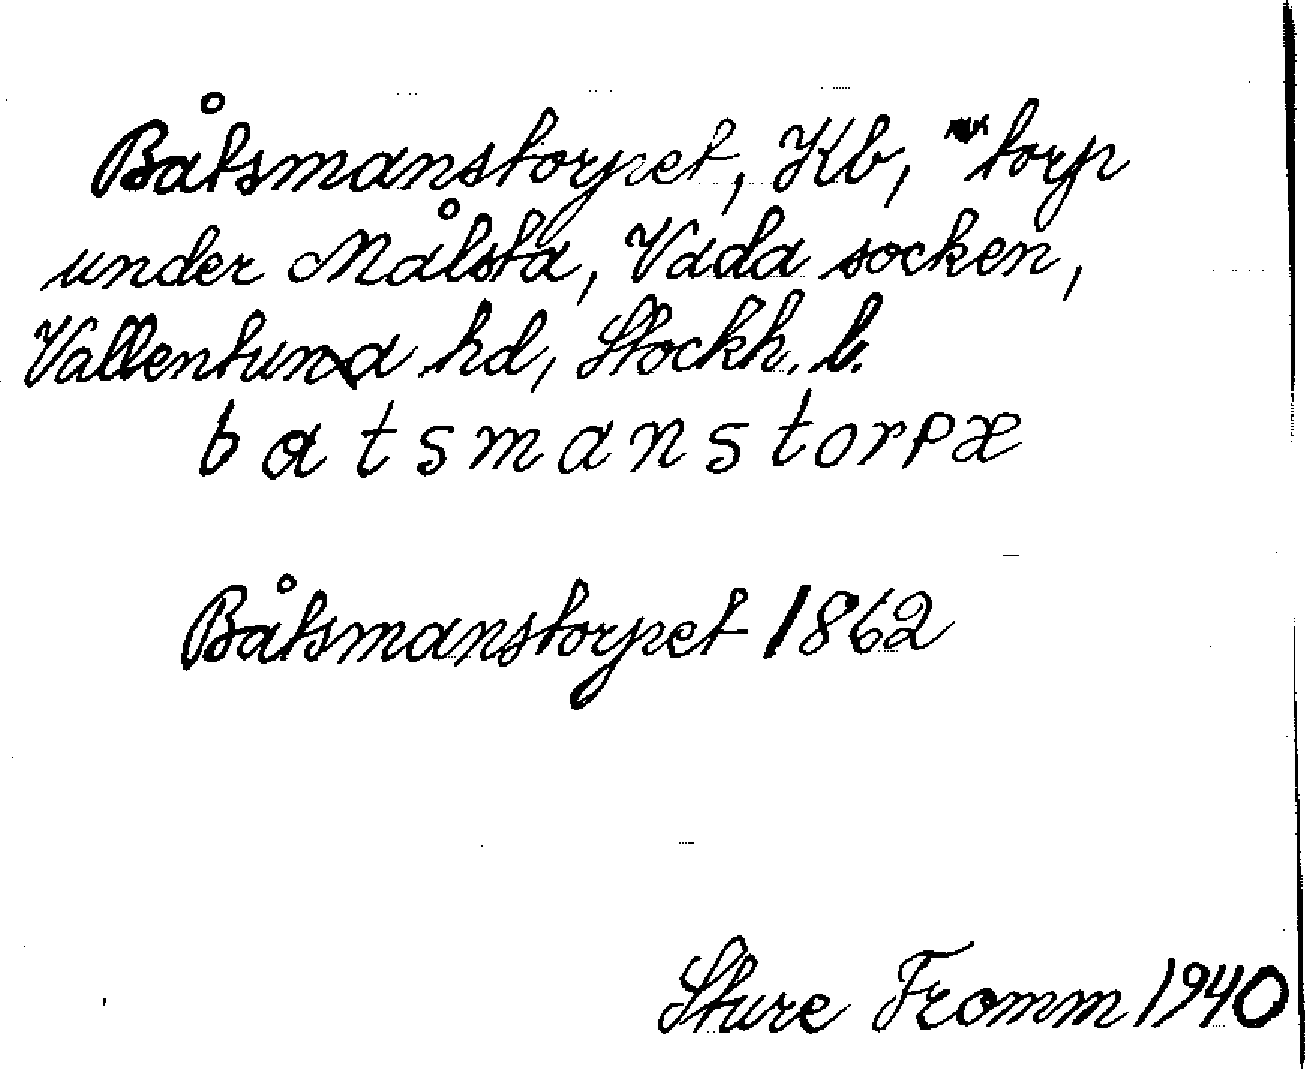 Båtsmanstorpet, Kb, torp
under Målsta, Vada socken,
Vallentuna hd, Stockh. l.
batsmanstorpæ
Båtsmanstorpet 1862
Sture Fromm 1940